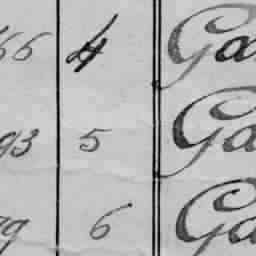 66 4 Ga
93 5 Ga
79 6 Ga